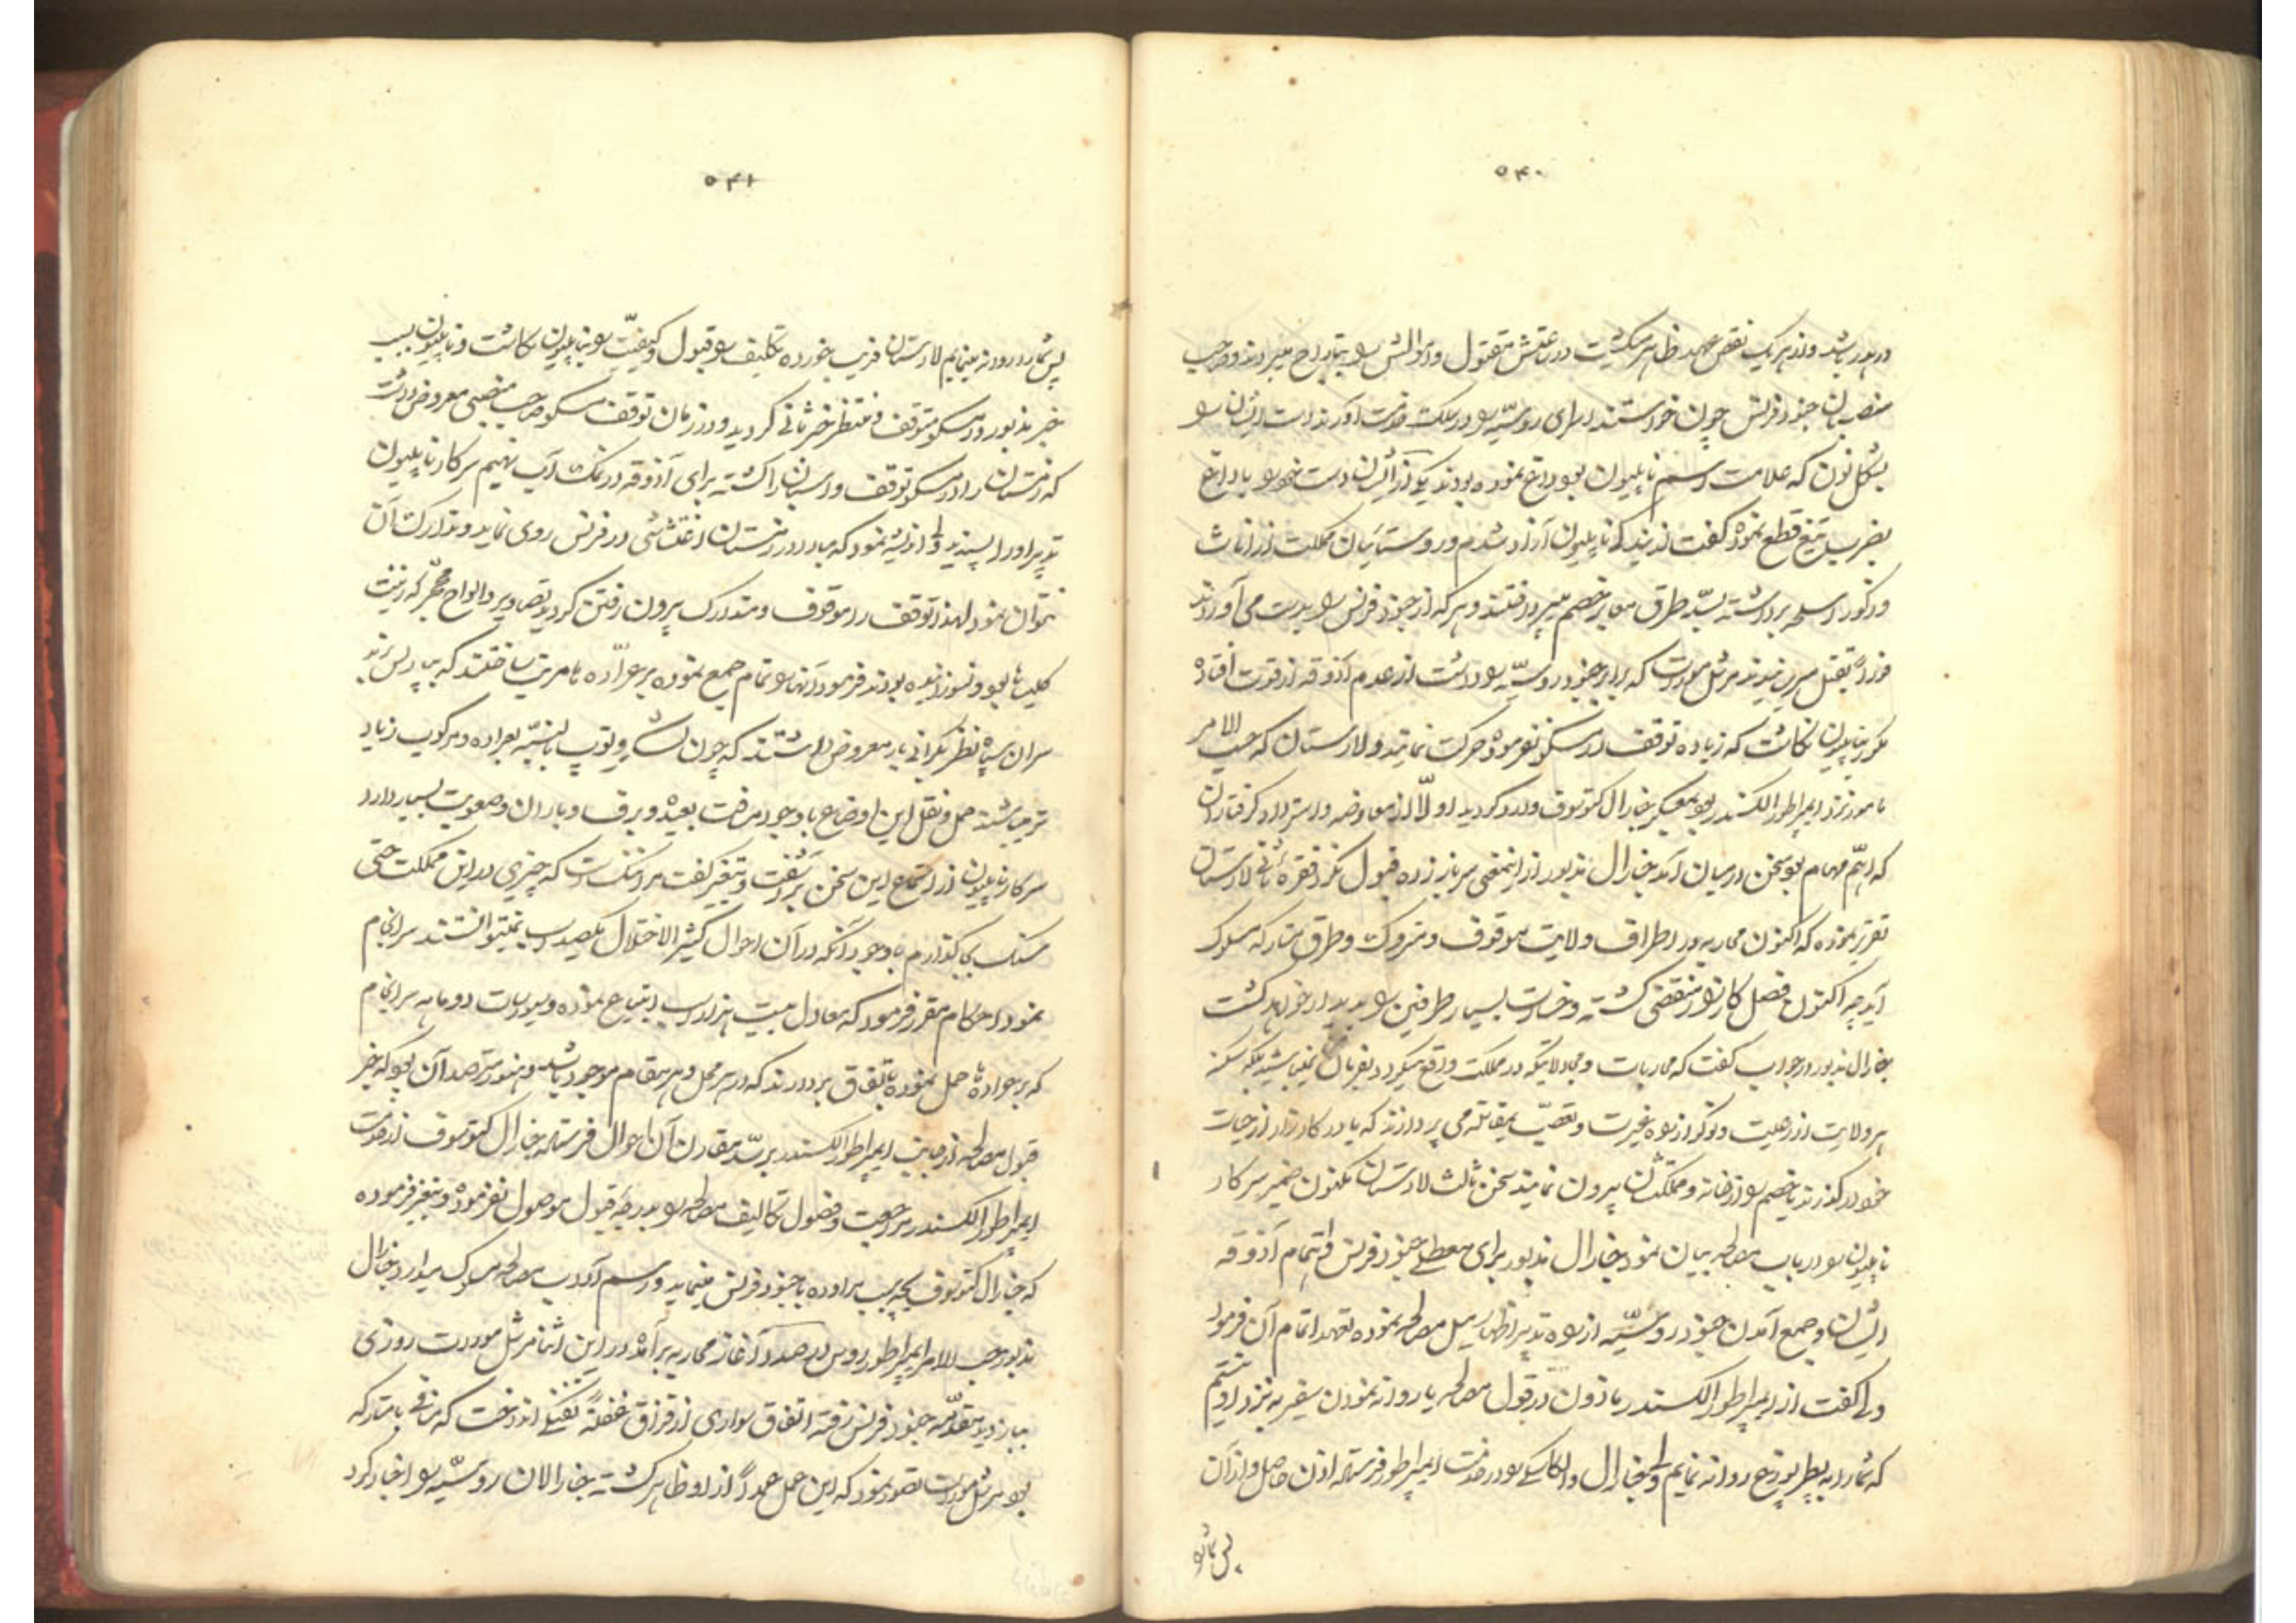 ۵۴۰
در بدر باشد و از هر یک نقض عهد ظاهر میکشت در ساعتش مقتول و اموالش را بتاراج میبردند و صاحب
منصبان جنود فرنس چون خواستند اسرای روسیه را در سلک خدمت آورند دست ایشان را
بشکل نون که علامت اسم ناپلیون بود داغ نموده بودند یکی از ایشان دست خود را با داغ
بضرب تیغ قطع نموده گفت از بندگی ناپلیون آزاد شدم و روستائیان مملکت از اناث
و ذکور اسلحه برداشته بسد طرق معابر خصم میپرداختند و هر که از جنود فرنس را بدست می آوردند
فوراً بقتل میرسانیدند مرشل مورات که برابر جنود روسیه را داشت از عدم آذوقه از قوت افتاده
مکرر بناپلیون نکاشت که زیاده توقف در مسکو نفرموده حرکت نمایند و لارستان که حسب الامر
مامور نزد ایمپراطور الکسندر بود بمعسکر جنارال کتوسوف وارد کردید اولاً از معاوضه و استرداد کرفتاران
که اهم مهام بود سخن در میان آمد جنارال مذبور از اینمعنی سر باز زده قبول نکرد فقره ثانی لارستان
تقریر نموده که اکنون محاربه در اطراف ولایت موقوف و متروک و طرق متارکه مسلوک
آید چه اکنون فصل کارزار منقضی کشته و خسارت بسیار طرفین را پدیدار خواهد کشت
جنارال مذبور در جواب کفت که محاربات و مجادلاتیکه در مملکت واقع میکردد بفرمان نمیباشد بلکه سکنه
هر ولایت از رعیت و نوکر از راه غیرت و تعصب بمقاتله می پردازند که یا در کارزار از حیات
خود در کذرند یا خصم را از خانه و مملکتشان بیرون نمایند سخن ثالث لارستان مکنون ضمیر سرکار
ناپلیون را در باب مصالحه بیان نمود جنارال مذبور برای معطلی جنود فرنس و اتمام آذوقه
ایشان و جمع آمدن جنود روسیه از راه تدبیر اظهار میل مصالحه نموده تعهد اتمام آن فرمود
ولی کفت از ایمپراطور الکسندر ماذون در قبول مصالحه یا روانه نمودن سفیر به نزد او نیستم
که شما را به پطربورغ روانه نمایم ولی جنارال والکانسکی را در خدمت ایمپراطور فرستاده اذن حاصل و از آن
پس شما را
۵۴۱
پس شما را روانه مینمایم لارستان فریب خورده تکلیف را قبول و کیفیت را بناپلیون نکاشت و ناپلیون بسبب
خبر مذبور در مسکو متوقف و منتظر خبر ثانی کردید و در زمان توقف مسکو صاحب منصبی معروض داشت
که زمستان را در مسکو توقف و اسبان را کشته برای آذوقه در نمک آب نهیم سرکار ناپلیون
تدبیر او را پسندید ولی اندیشه نمود که مبادا در زمستان اغتشاشی در فرنس روی نماید و تدارک آن
نتوان نمود لهذا توقف را موقوف و متدارک بیرون رفتن کردید تصاویر و الواح محجر که زینت
کلیساها بود و نسوزانیده بودند فرمود آنها را تمام جمع نموده بر عراده ها مرتب ساختند که بپاریس برند
سران سپاه نظر بکرانی بار معروض داشتند که چون لشکر و توپ بالنسبه بعراده و مرکوب زیاد
تر میباشند حمل و نقل این اوضاع با وجود مسافت بعیده و برف و باران صعوبت بسیار دارد
سرکار ناپلیون از استماع این سخن برآشفت و بتغیر کفت مرا ننک است که چیزی در این مملکت حتی
سنک بجا کذارم با وجود آنکه در آن احوال کثیر الاختلال یکصد اسب نمیتوانستند سرانجام
نمود احکام مقرر فرمود که معادل بیست هزار اسب ابتیاع نموده و سیورسات دو ماهه سرانجام
که بر عراده ها حمل نموده باتفاق بردارند که در هر محل و هر مقام موجود باشد و هنوز مترصد آن بود که خبر
قبول مصالحه از جانب ایمپراطور الکسندر برسد مقارن آن احوال فرستاده جنارال کتوسوف از خدمت
ایمپراطور الکسندر مراجعت و فصول تکالیف مصالحه را بدرجه قبول موصول نفرموده و تغیر فرموده
که جنارال کتوسوف بچه سبب مراوده با جنود فرنس مینماید و رسم آداب مصالحه مسلوک میدارد جنارال
مذبور حسب الامر ایمپراطور روس در صدد آغاز محاربه برآمده در این اثنا مرشل مورات روزی
ببازدید مقدمه جنود فرنس رفته اتفاق سواری از قزاق غفلةً تفنکی انداخت که منافی با متارکه
بود مرشل مورات تصور نمود که این عمل عمداً از او ظاهر کشته جنارالان روسیه را اخبار کرد